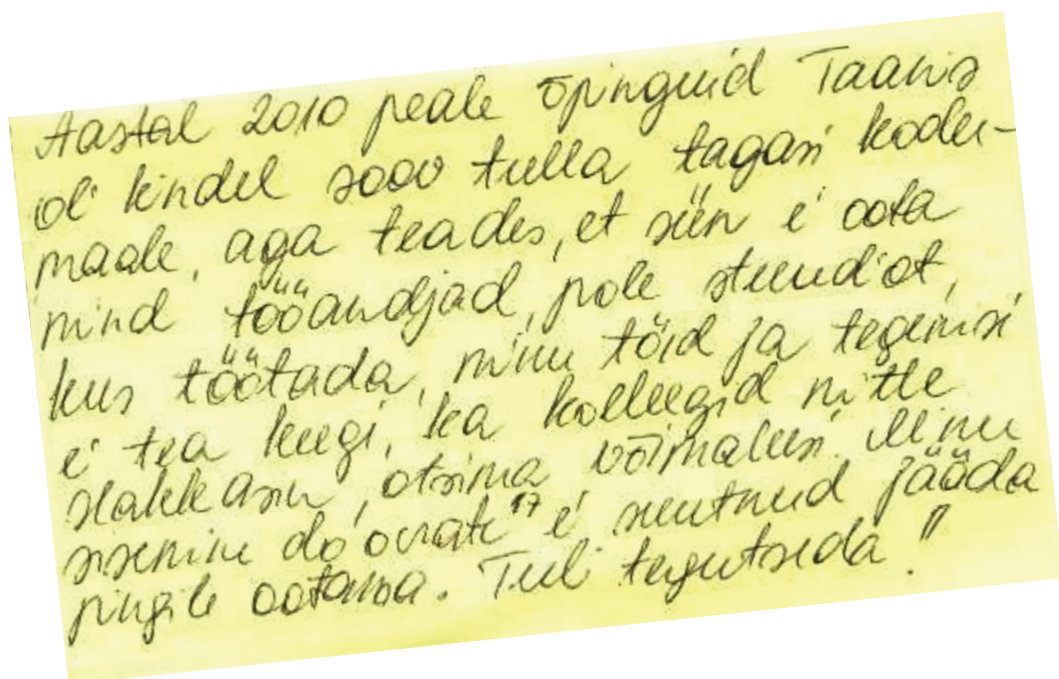 Aastal 2010 peale õpinguid Taanis
oli kindel soov tulla tagasi kodu-
maale, aga teades, et siin ei oota
mind tööandjad, pole stuudiot,
kus töötada, minu töid ja tegemisi
ei tea keegi, ka kolleegid mitte
Hakkasin otsima võimalusi. Minu
sisemine do'ovrate"17 ei suutnud jääda
pingile ootama. Tuli tegutseda"